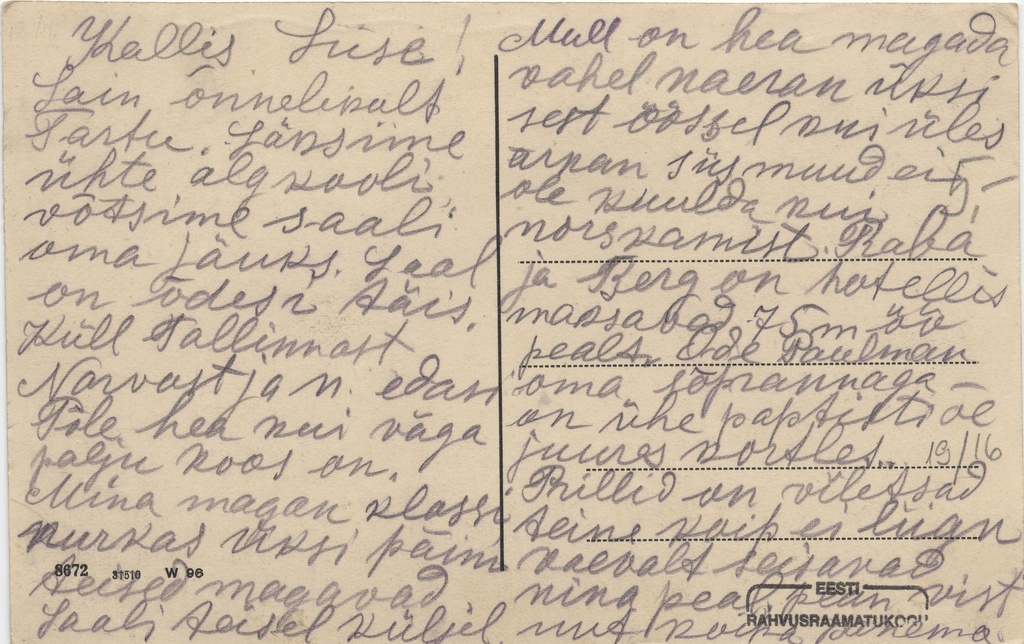 Kallis Liisa!
Sain õnnelikult
Tartu. Läksime
ühte algkooli
võtsime saali
oma jäuks. Saal
on õdesi täis.
Küll Tallinnast
Narvast ja n. edasi
Pole hea kui väga
palju koos on.
Mina magan klassi
nurkas üksi päini
teised magavad
Saali teisel küljel
Mull on hea magada
vahel naeran üksi
sest öössel kui üles
ärkan siis muud ei
ole kuulda kui
norskamist. Raba
ja Berg on hotellis
maksavad 75 m öö
pealt. Ode Paulman
oma sõprannaga –
on ühe paptisti õe
juures kortles.
Prillid on viletsad
teine koip ei liigu
vaevalt seisavad
ning peal pean vist
nut
5.-
19/16
8672 31510 W 96
EESTI
RAHVUSRAAMATUKOGU